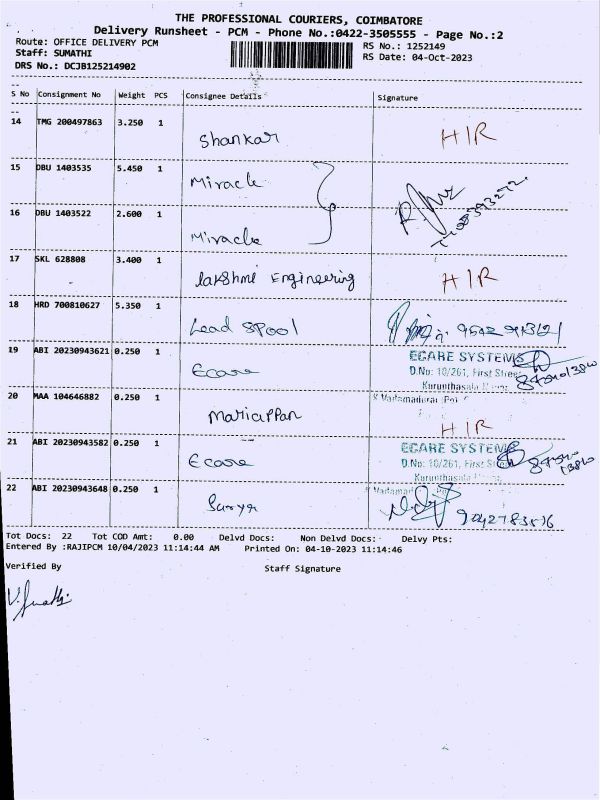 THE PROFESSIONAL COURIERS, COIMBATORE
Delivery Runsheet - PCM - Phone No.:0422-3505555 - Page No.:2
Route: OFFICE DELIVERY PCM
RS No.: 1252149
Staff: SUMATHI
RS Date: 04-Oct-2023
DRS No.: DCJB125214902
S No Consignment No Weight PCS Consignee Details Signature
14 TMG 200497863 3.250 1 Shankar HIR
15 DBU 1403535 5.450 1 Miracle
16 DBU 1403522 2.600 1 Miracle
17 SKL 628808 3.400 1 lakshmi Engineering HIR
18 HRD 700810627 5.350 1 Lead Spool
19 ABI 20230943621 0.250 1 Ecare
ECARE SYSTEMS
D.No: 10/261, First Street
20 MAA 104646882 0.250 1 Mariappan HIR
21 ABI 20230943582 0.250 1 Ecare
ECARE SYSTEMS
D.No: 10/261, First
22 ABI 20230943648 0.250 1 Surya
Tot Docs: 22 Tot COD Amt: 0.00 Delvd Docs: Non Delvd Docs: Delvy Pts:
Entered By :RAJIPCM 10/04/2023 11:14:44 AM Printed On: 04-10-2023 11:14:46
Verified By Staff Signature